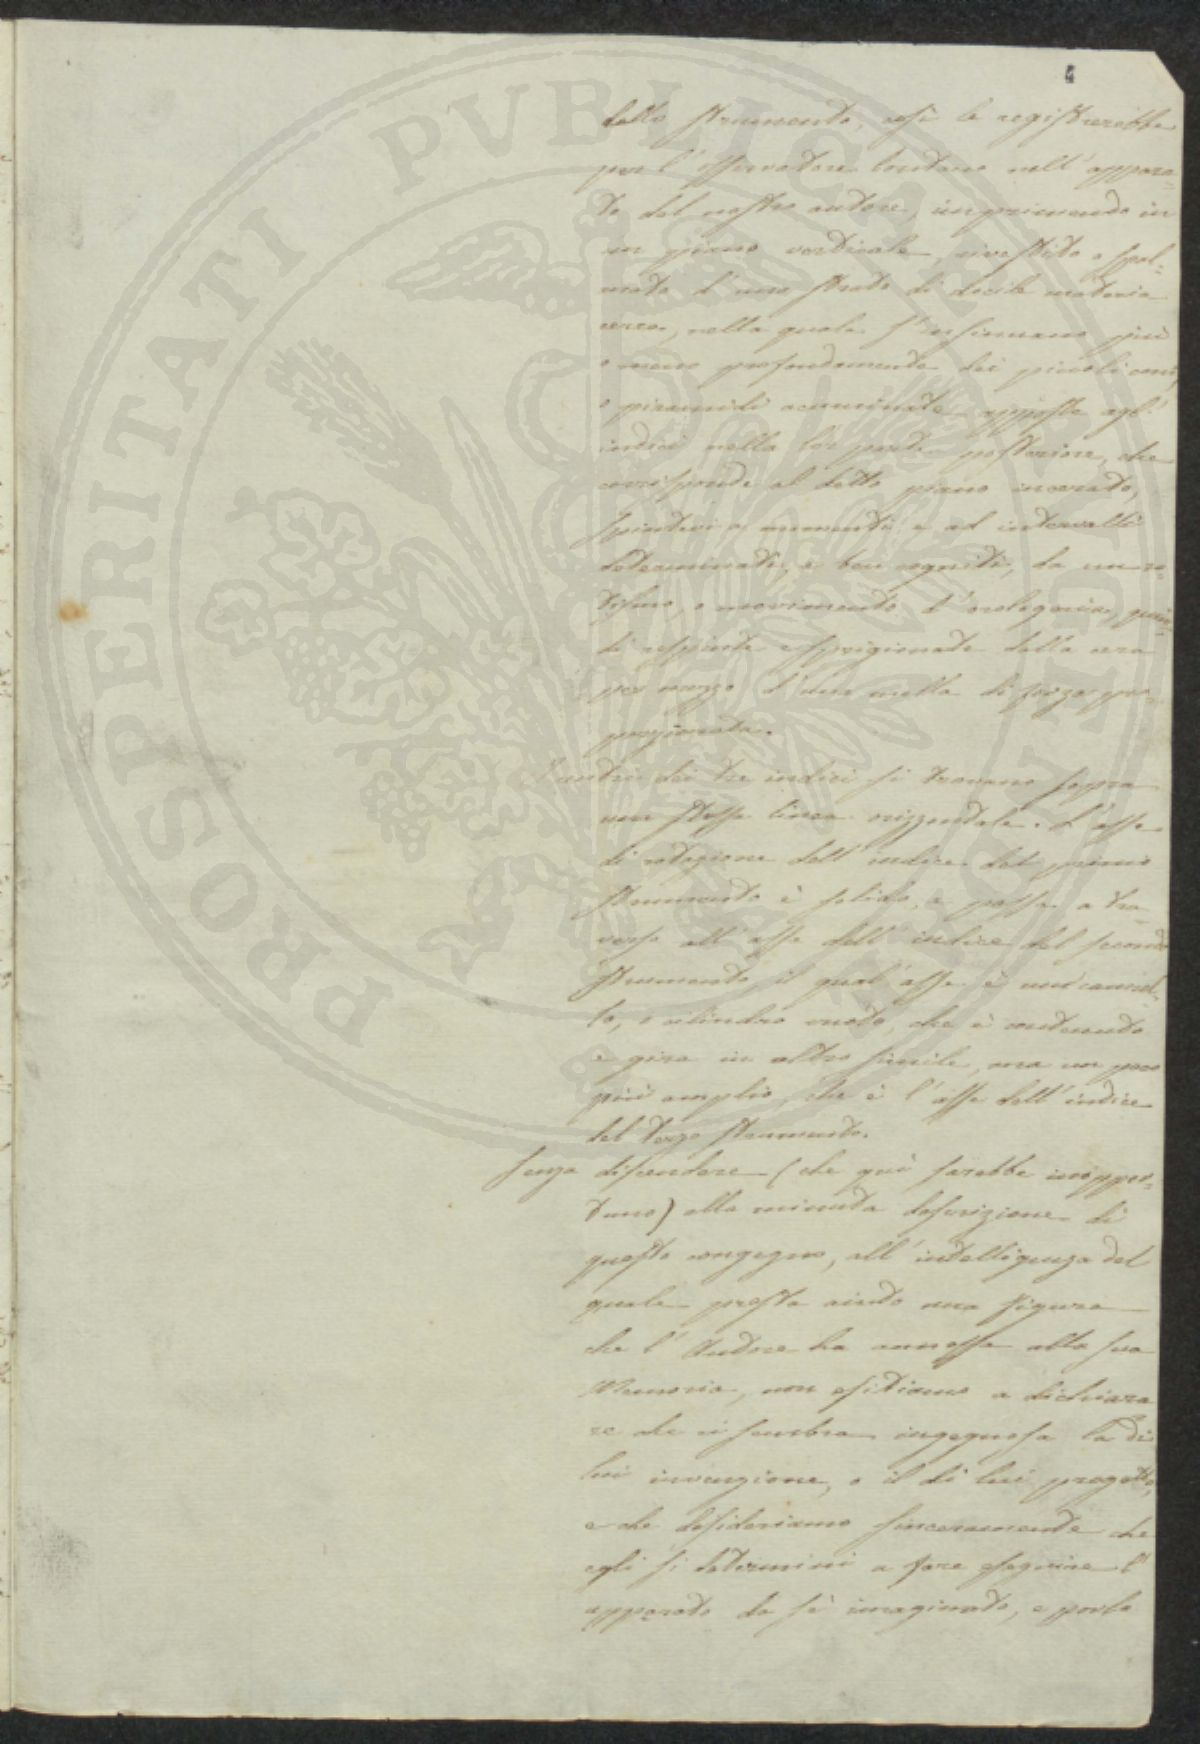 4
dello strumento, così le registrerebbe
per l'osservatore lontano nell'appara-
to del nostro autore, imprimendo in
un piano verticale, rivestito o spal-
mato d'uno strato di docile materia
cerea, nella quale s'insinuano più
o meno profondamente dei piccoli coni,
o piramidi acuminate apposte agl'
indici nella lor parte posteriore, che
corrisponde al detto piano incerato,
spintevi a momenti e ad intervalli
determinati, e ben cogniti, da un ro-
tismo, o movimento d'orologeria, quin-
di respinte e sprigionate dalla cera
per mezzo d'una molla di forza pro-
porzionata.
I centri dei tre indici si trovano sopra
una stessa linea orizzontale. L'asse
di rotazione dell'indice del primo
strumento è solido, e passa a tra-
verso all'asse dell'indice del secondo
strumento, il qual'asse è un cannel-
lo, o cilindro vuoto, che è contenuto
e gira in altro simile, ma un poco
più amplio, che è l'asse dell'indice
del terzo strumento.
Senza discendere (che quì sarebbe inoppor-
tuno) alla minuta descrizione di
questo congegno, all'intelligenza del
quale presta aiuto una figura
che l'Autore ha annessa alla sua
Memoria, non esitiamo a dichiara
re che ci sembra ingegnosa la di
lui invenzione, o il di lui progetto,
e che desideriamo sinceramente che
egli si determini a fare eseguire l'
apparato da sè imaginato, e porlo
PROSPERITATI PVBLICAE